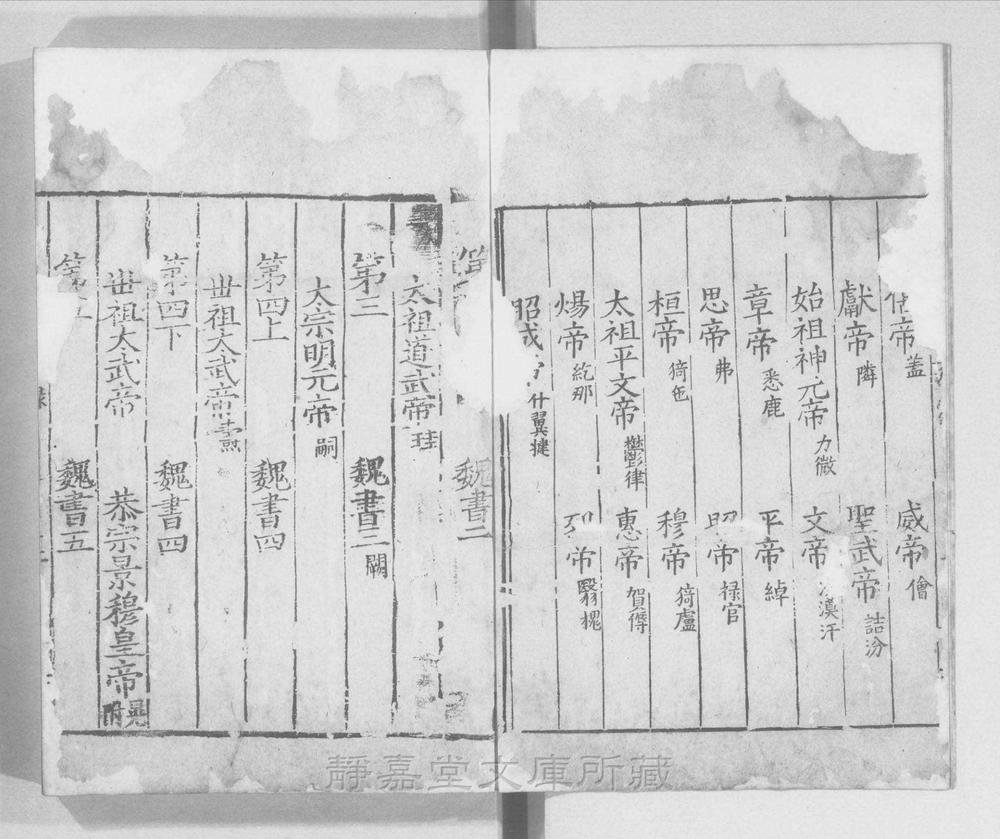 帝蓋 威帝儈
獻帝隣 聖武帝詰汾
始祖神元帝力微 文帝漠汗
章帝悉鹿 平帝綽
思帝弗 昭帝祿官
桓帝猗㐌 穆帝猗盧
太祖平文帝鬱律 惠帝賀傉
煬帝紇那 烈帝翳槐
昭成帝什翼犍
魏書二
太祖道武帝珪
第三 魏書三闕
太宗明元帝嗣
第四上 魏書四
世祖太武帝燾
第四下 魏書四
世祖太武帝 恭宗景穆皇帝晃附
第五 魏書五
靜嘉堂文庫所藏